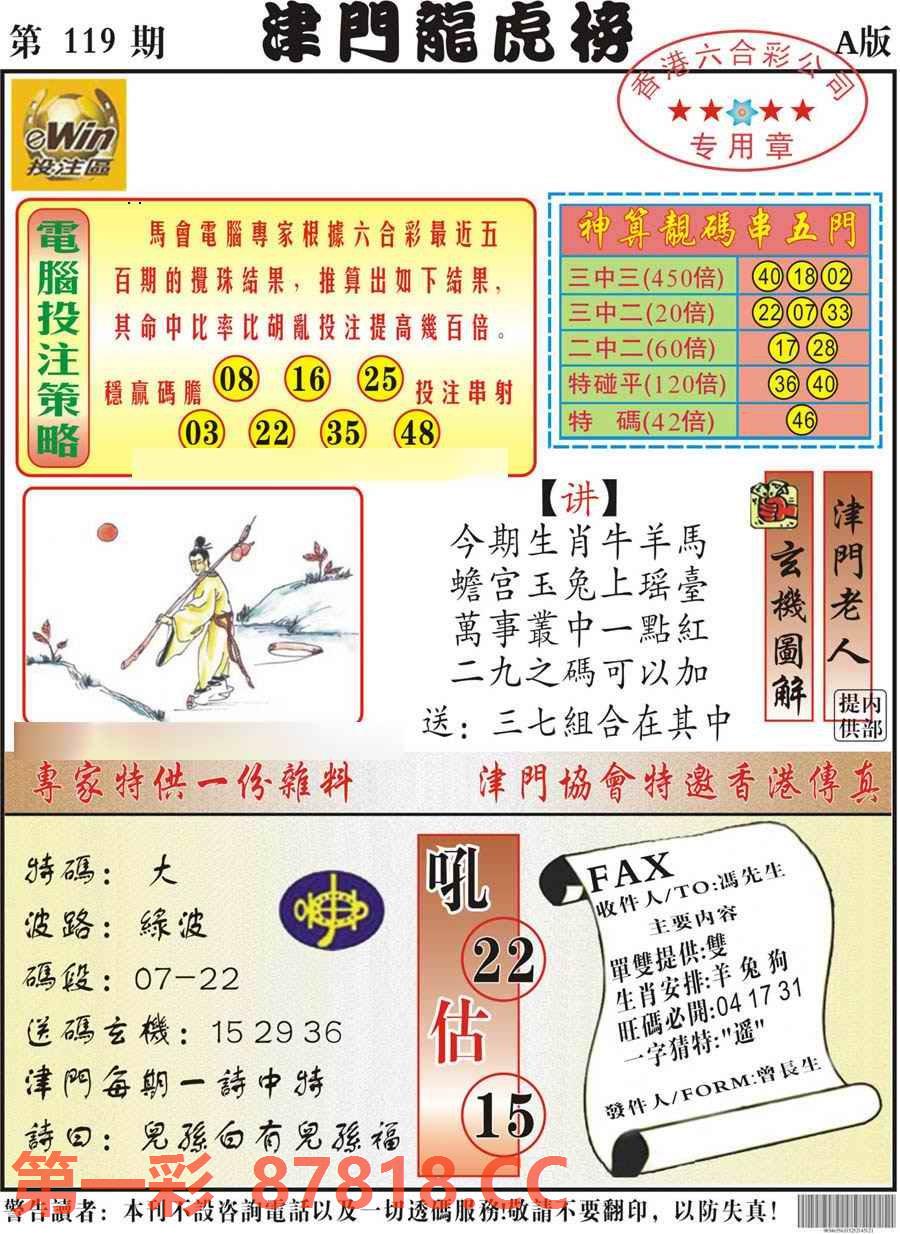 第 119 期
津門龍虎榜
A版
香港六合彩公司
专用章
eWin
投注區
電腦投注策略
馬會電腦專家根據六合彩最近五
百期的攪珠結果，推算出如下結果，
其命中比率比胡亂投注提高幾百倍。
穩贏碼膽 08 16 25 投注串射
03 22 35 48
神算靚碼串五門
三中三(450倍) 40 18 02
三中二(20倍) 22 07 33
二中二(60倍) 17 28
特碰平(120倍) 36 40
特 碼(42倍) 46
【讲】
今期生肖牛羊馬
蟾宫玉兔上瑶臺
萬事叢中一點紅
二九之碼可以加
送：三七組合在其中
玄機圖解
津門老人
内部提供
專家特供一份雜料
津門協會特邀香港傳真
特碼：大
波路：綠波
碼段：07-22
送碼玄機：15 29 36
津門每期一詩中特
詩曰：兒孫自有兒孫福
吼
22
估
15
FAX
收件人/TO:馮先生
主要内容
單雙提供:雙
生肖安排:羊 兔 狗
旺碼必開:04 17 31
一字猜特:"遥"
發件人/FORM:曾長生
第一彩 87818.CC
警告讀者：本刊不設咨詢電話以及一切透碼服務!敬請不要翻印，以防失真!